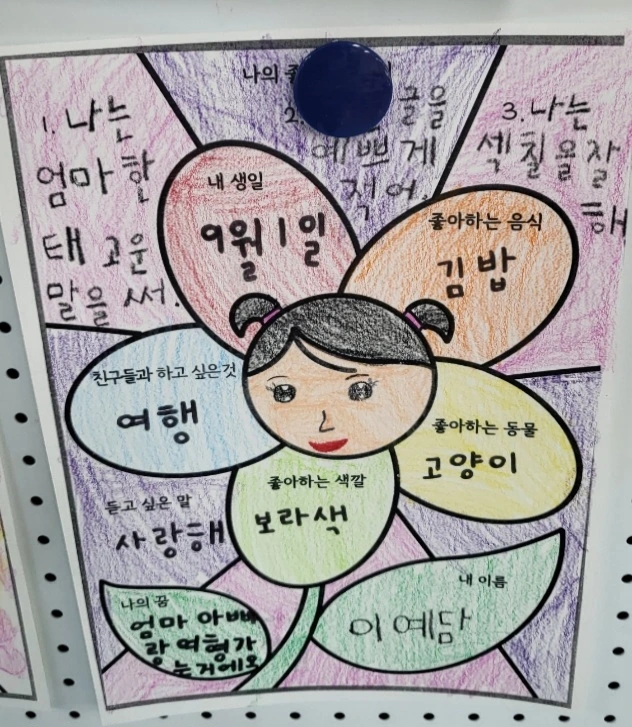 나의
1. 나는
엄마 한
태 고운
말을 써.
글을
예쁘게
적어.
3. 나는
색칠을잘
해
내 생일
9월 1일
좋아하는 음식
김밥
친구들과 하고 싶은것
여행
좋아하는 동물
고양이
좋아하는 색깔
보라색
듣고 싶은 말
사랑해
내 이름
이예담
나의 꿈
엄마 아빠
랑 여행가
는거에요